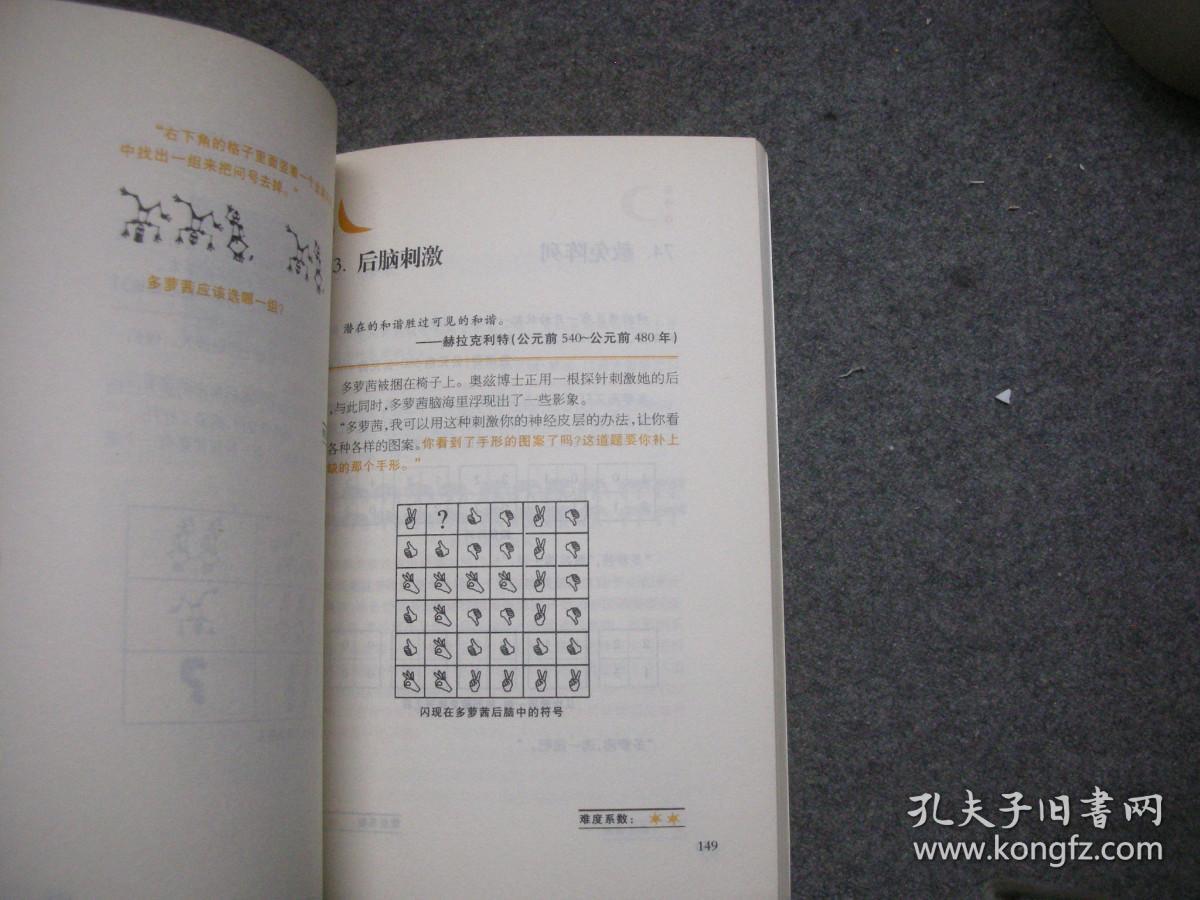 “右下角的格子里面竖着一个
中找出一组来把问号去掉。”
多萝茜应该选哪一组？
3. 后脑刺激
潜在的和谐胜过可见的和谐。
——赫拉克利特(公元前 540~公元前 480 年)
多萝茜被捆在椅子上。奥兹博士正用一根探针刺激她的后
，与此同时，多萝茜脑海里浮现出了一些影象。
“多萝茜，我可以用这种刺激你的神经皮层的办法，让你看
各种各样的图案。你看到了手形的图案了吗？这道题要你补上
缺的那个手形。”
?
闪现在多萝茜后脑中的符号
难度系数：
149
孔夫子旧书网
www.kongfz.com